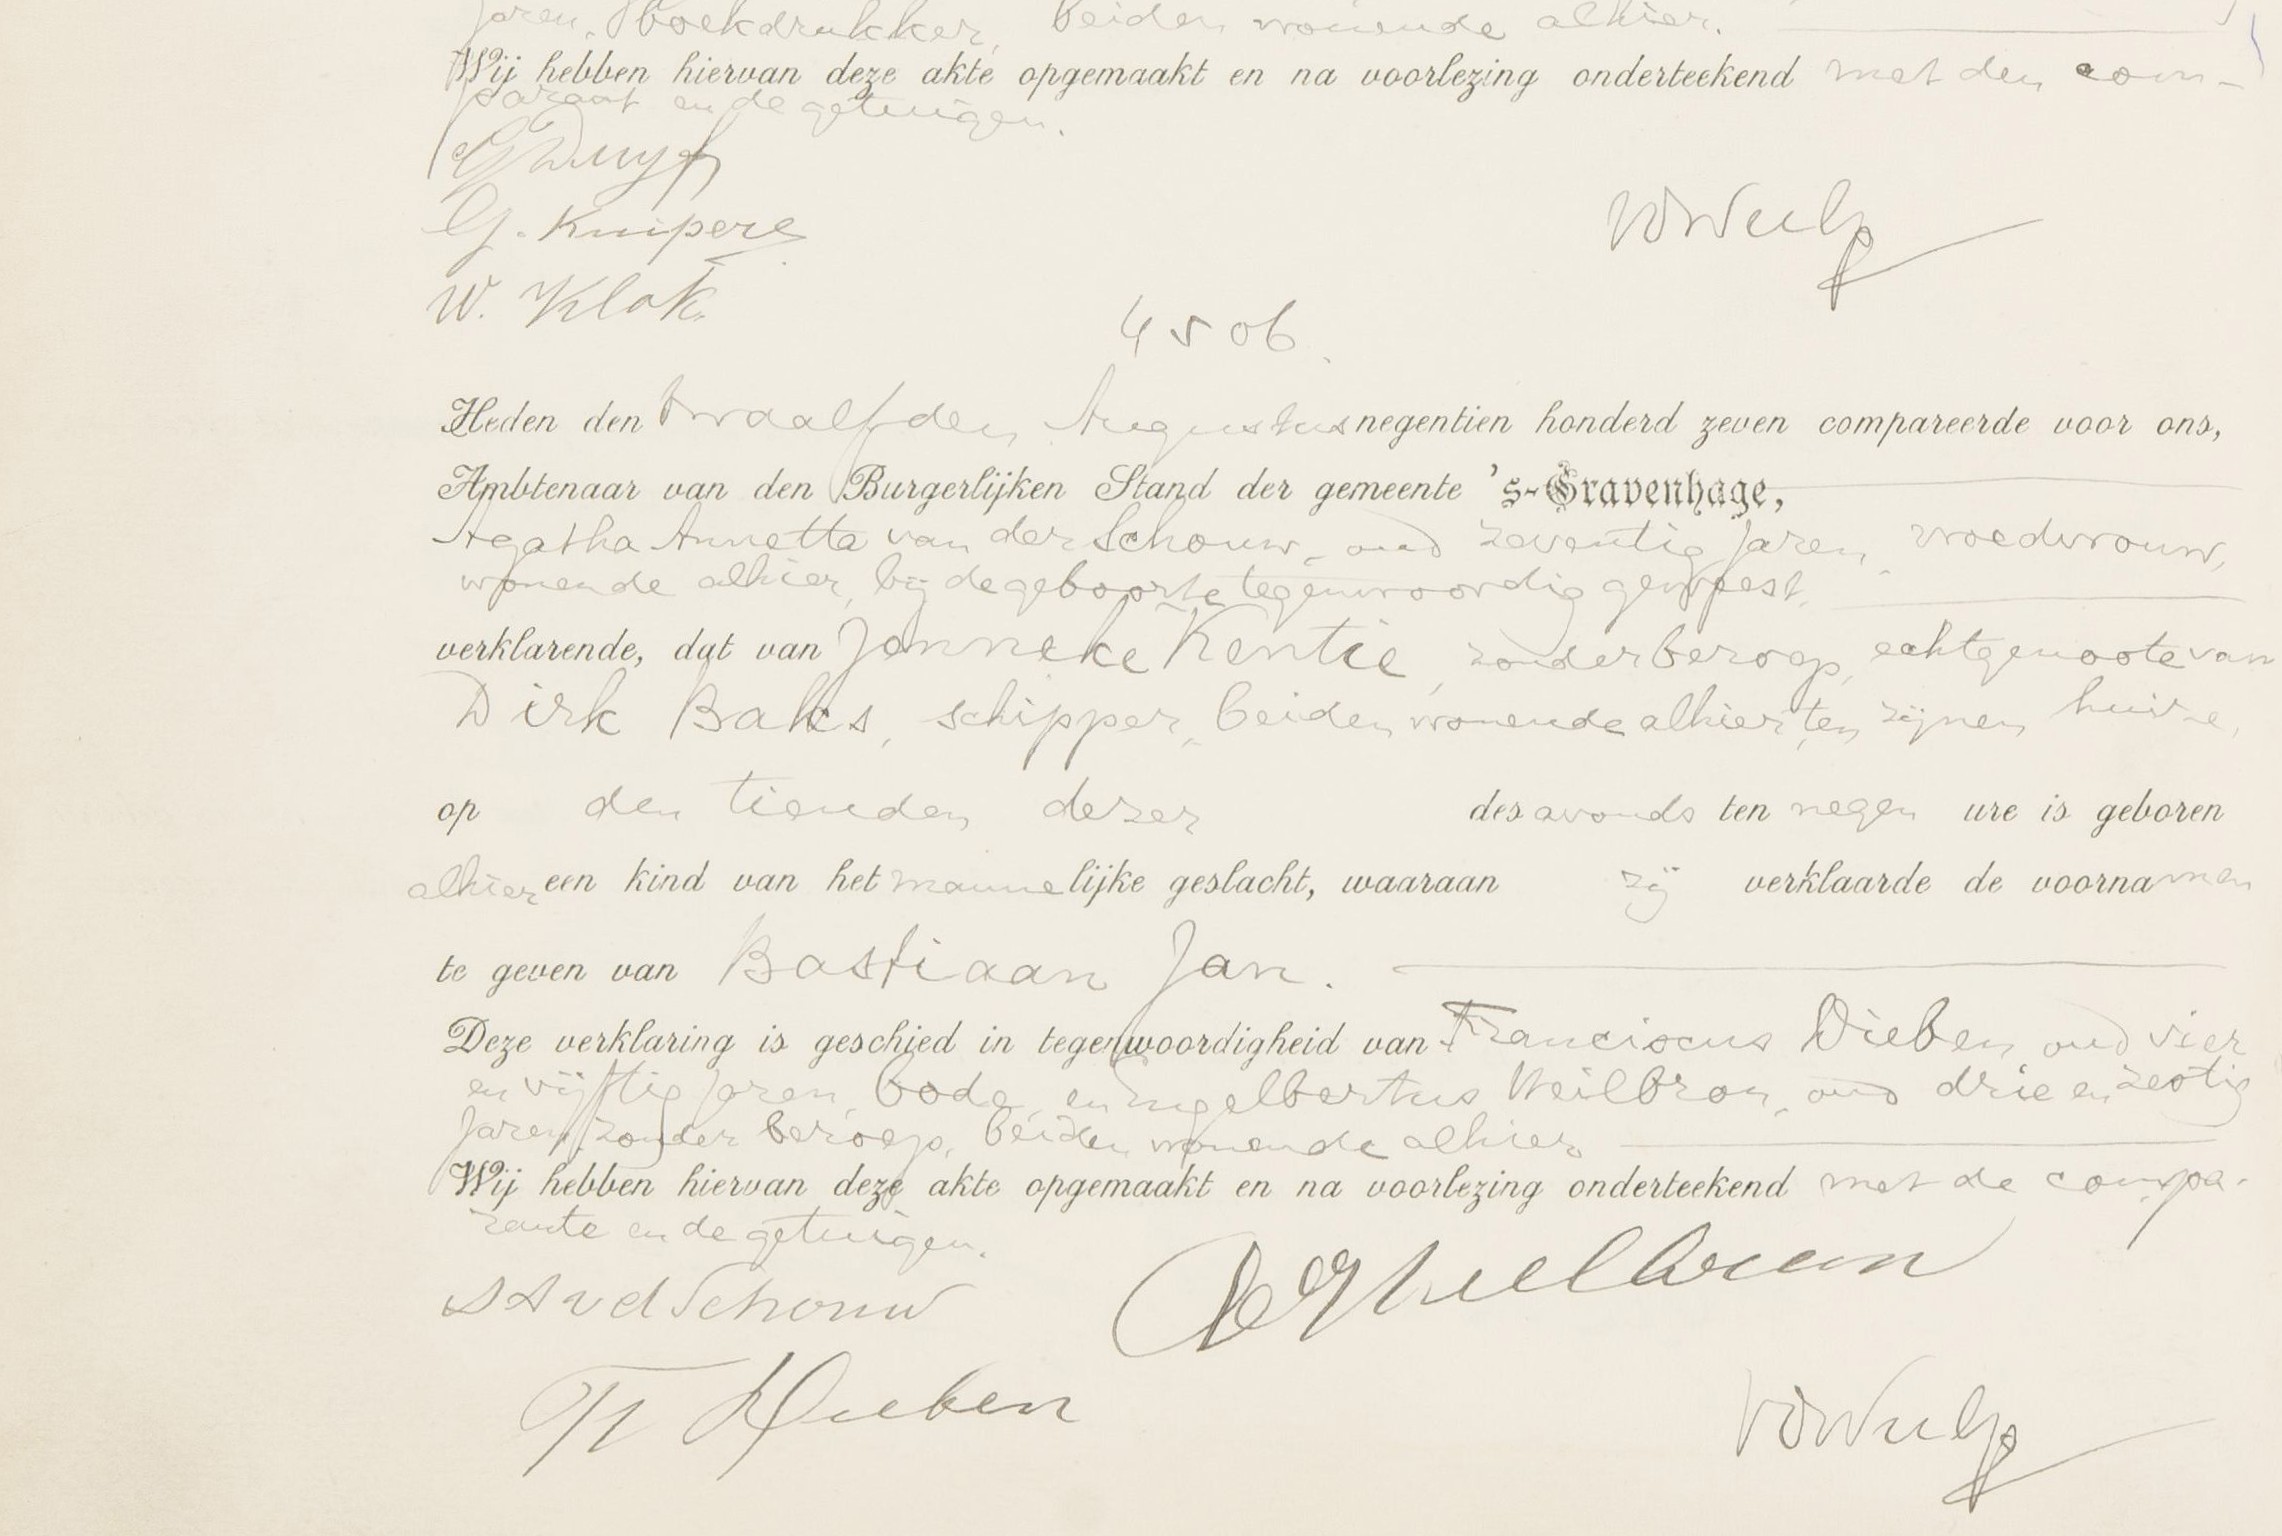 jaren, boekdrukker, beiden wonende alhier.
Wij hebben hiervan deze akte opgemaakt en na voorlezing onderteekend met den com-
parant en de getuigen.
G Duyf
G. Kuipers
VDWulp
W. Klok.
4506.
Heden den twaalfden Augustus negentien honderd zeven compareerde voor ons,
Ambtenaar van den Burgerlijken Stand der gemeente 's-Gravenhage,
Agatha Annetta van der Schouw, oud zeventig jaren, vroedvrouw,
wonende alhier, bij de geboorte tegenwoordig geweest,
verklarende, dat van Janneke Kentie, zonder beroep, echtgenoote van
Dirk Baks, schipper, beiden wonende alhier, ten zijnen huize,
op den tienden dezer des avonds ten negen ure is geboren
alhier een kind van het mannelijke geslacht, waaraan zij verklaarde de voornamen
te geven van Bastiaan Jan.
Deze verklaring is geschied in tegenwoordigheid van Franciscus Dieben, oud vier
en vijftig jaren, bode, en Engelbertus Heilbron, oud drie en zestig
jaren, zonder beroep, beiden wonende alhier
Wij hebben hiervan deze akte opgemaakt en na voorlezing onderteekend met de compa-
rante en de getuigen.
A A v d Schouw
Fr Dieben
VDWulp